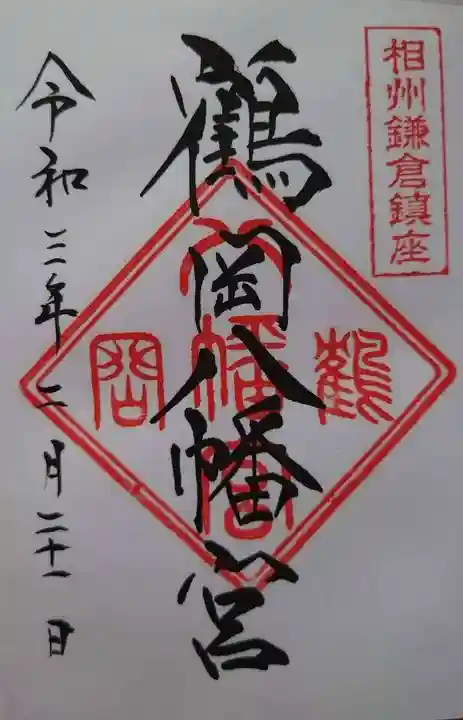 相州鎌倉鎮座
鶴岡八幡宮
鶴
八幡宮
岡
令和三年二月二十一日